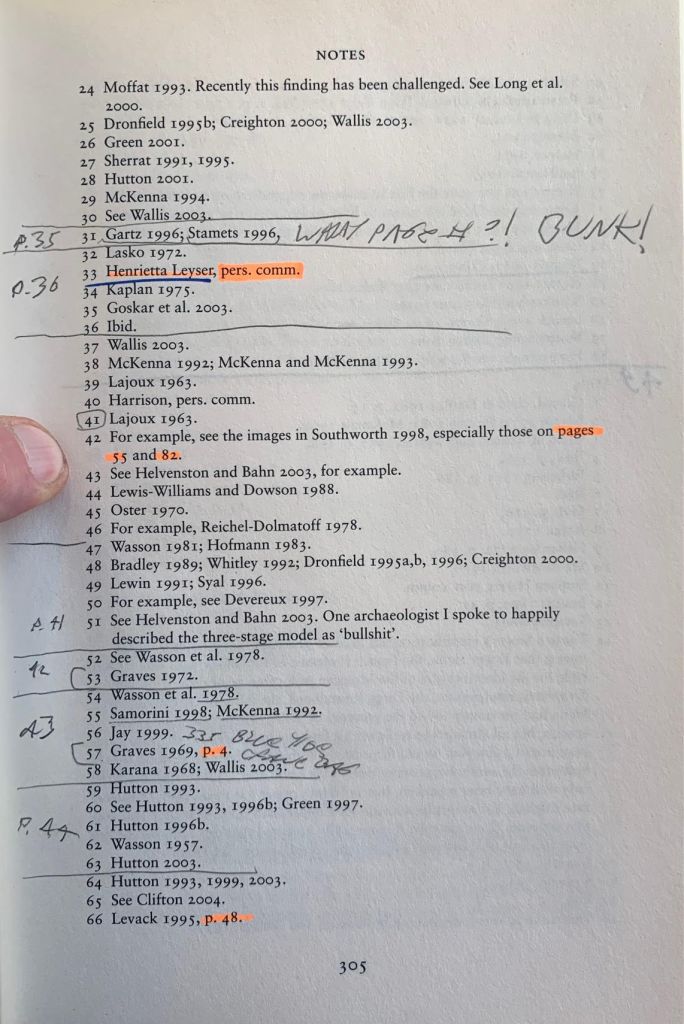 NOTES
24 Moffat 1993. Recently this finding has been challenged. See Long et al.
2000.
25 Dronfield 1995b; Creighton 2000; Wallis 2003.
26 Green 2001.
27 Sherrat 1991, 1995.
28 Hutton 2001.
29 McKenna 1994.
30 See Wallis 2003.
P.35 31 Gartz 1996; Stamets 1996, WHAT PAGE # ?! BUNK!
32 Lasko 1972.
P.36 33 Henrietta Leyser, pers. comm.
34 Kaplan 1975.
35 Goskar et al. 2003.
36 Ibid.
37 Wallis 2003.
38 McKenna 1992; McKenna and McKenna 1993.
39 Lajoux 1963.
40 Harrison, pers. comm.
41 Lajoux 1963.
42 For example, see the images in Southworth 1998, especially those on pages
55 and 82.
43 See Helvenston and Bahn 2003, for example.
44 Lewis-Williams and Dowson 1988.
45 Oster 1970.
46 For example, Reichel-Dolmatoff 1978.
47 Wasson 1981; Hofmann 1983.
48 Bradley 1989; Whitley 1992; Dronfield 1995a,b, 1996; Creighton 2000.
49 Lewin 1991; Syal 1996.
50 For example, see Devereux 1997.
P. 41 51 See Helvenston and Bahn 2003. One archaeologist I spoke to happily
described the three-stage model as ‘bullshit’.
52 See Wasson et al. 1978.
42 53 Graves 1972.
54 Wasson et al. 1978.
55 Samorini 1998; McKenna 1992.
43 56 Jay 1999.
57 Graves 1969, p. 4.
58 Karana 1968; Wallis 2003.
59 Hutton 1993.
60 See Hutton 1993, 1996b; Green 1997.
P. 44 61 Hutton 1996b.
62 Wasson 1957.
63 Hutton 2003.
64 Hutton 1993, 1999, 2003.
65 See Clifton 2004.
66 Levack 1995, p. 48.
305